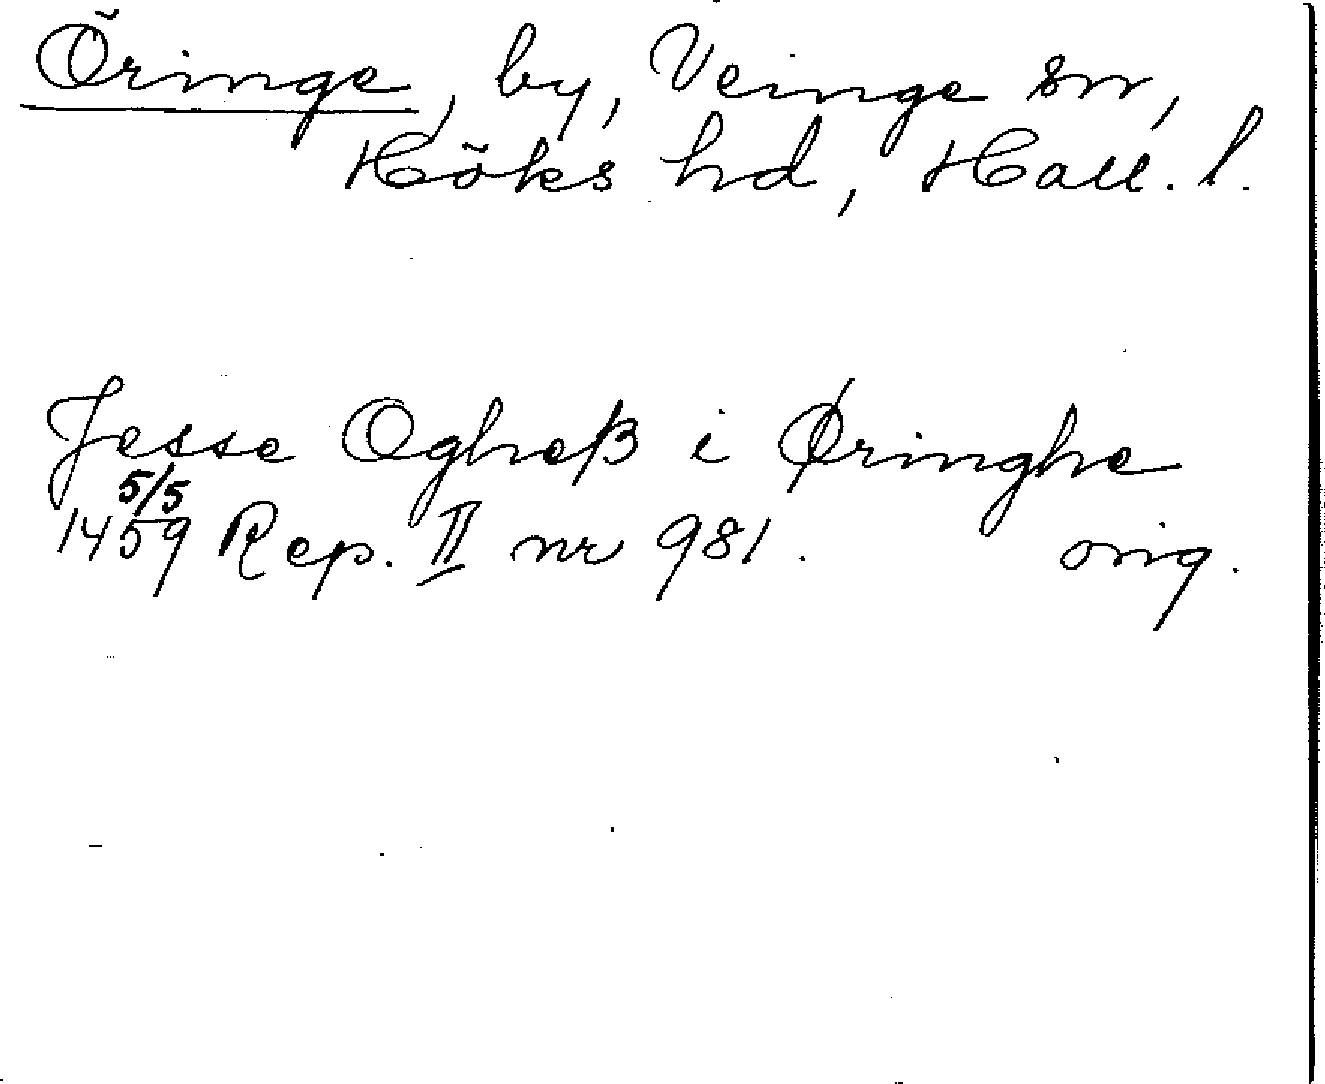 Öringe, by, Veinge sn,
Höks hd, Hall. l.
Jesse Ogheß i Øringhe
5/5
1459 Rep. II nr 981. orig.